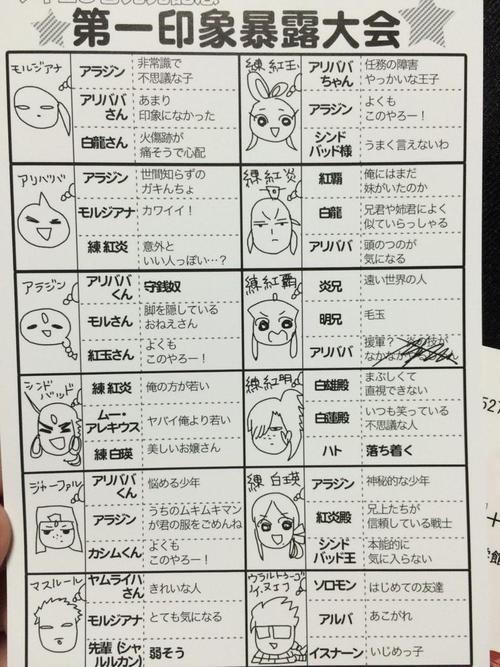 第一印象暴露大会
モルジアナ
アラジン
非常識で
不思議な子
アリババ
さん
あまり
印象になかった
白龍さん
火傷跡が
痛そうで心配
アリババ
アラジン
世間知らずの
ガキんちょ
モルジアナ
カワイイ！
練 紅炎
意外と
いい人っぽい…？
アラジン
アリババ
くん
守銭奴
モルさん
脚を隠している
おねえさん
紅玉さん
よくも
このやろー！
シンド
バッド
練 紅炎
俺の方が若い
ムー・
アレキウス
ヤバイ俺より若い
練 白瑛
美しいお嬢さん
ジャーファル
アリババ
くん
悩める少年
アラジン
うちのムキムキマン
が君の服をごめんね
カシムくん
よくも
このやろー！
マスルール
ヤムライハ
さん
きれいな人
モルジアナ
とても気になる
先輩（シャ
ルルカン）
弱そう
練 紅玉
アリババ
ちゃん
任務の障害
やっかいな王子
アラジン
よくも
このやろー！
シンド
バッド様
うまく言えないわ
練 紅炎
紅覇
俺にはまだ
妹がいたのか
白龍
兄君や姉君によく
似ていらっしゃる
アリババ
頭のつのが
気になる
練 紅覇
炎兄
遠い世界の人
明兄
毛玉
アリババ
援軍？
なかなか
練 紅明
白雄殿
まぶしくて
直視できない
白蓮殿
いつも笑っている
不思議な人
ハト
落ち着く
練 白瑛
アラジン
神秘的な少年
紅炎殿
兄上たちが
信頼している戦士
シンド
バッド王
本能的に
気に入らない
ウラルトゥーゴ
ノイ・ヌエブ
ソロモン
はじめての友達
アルバ
あこがれ
イスナーン
いじめっ子